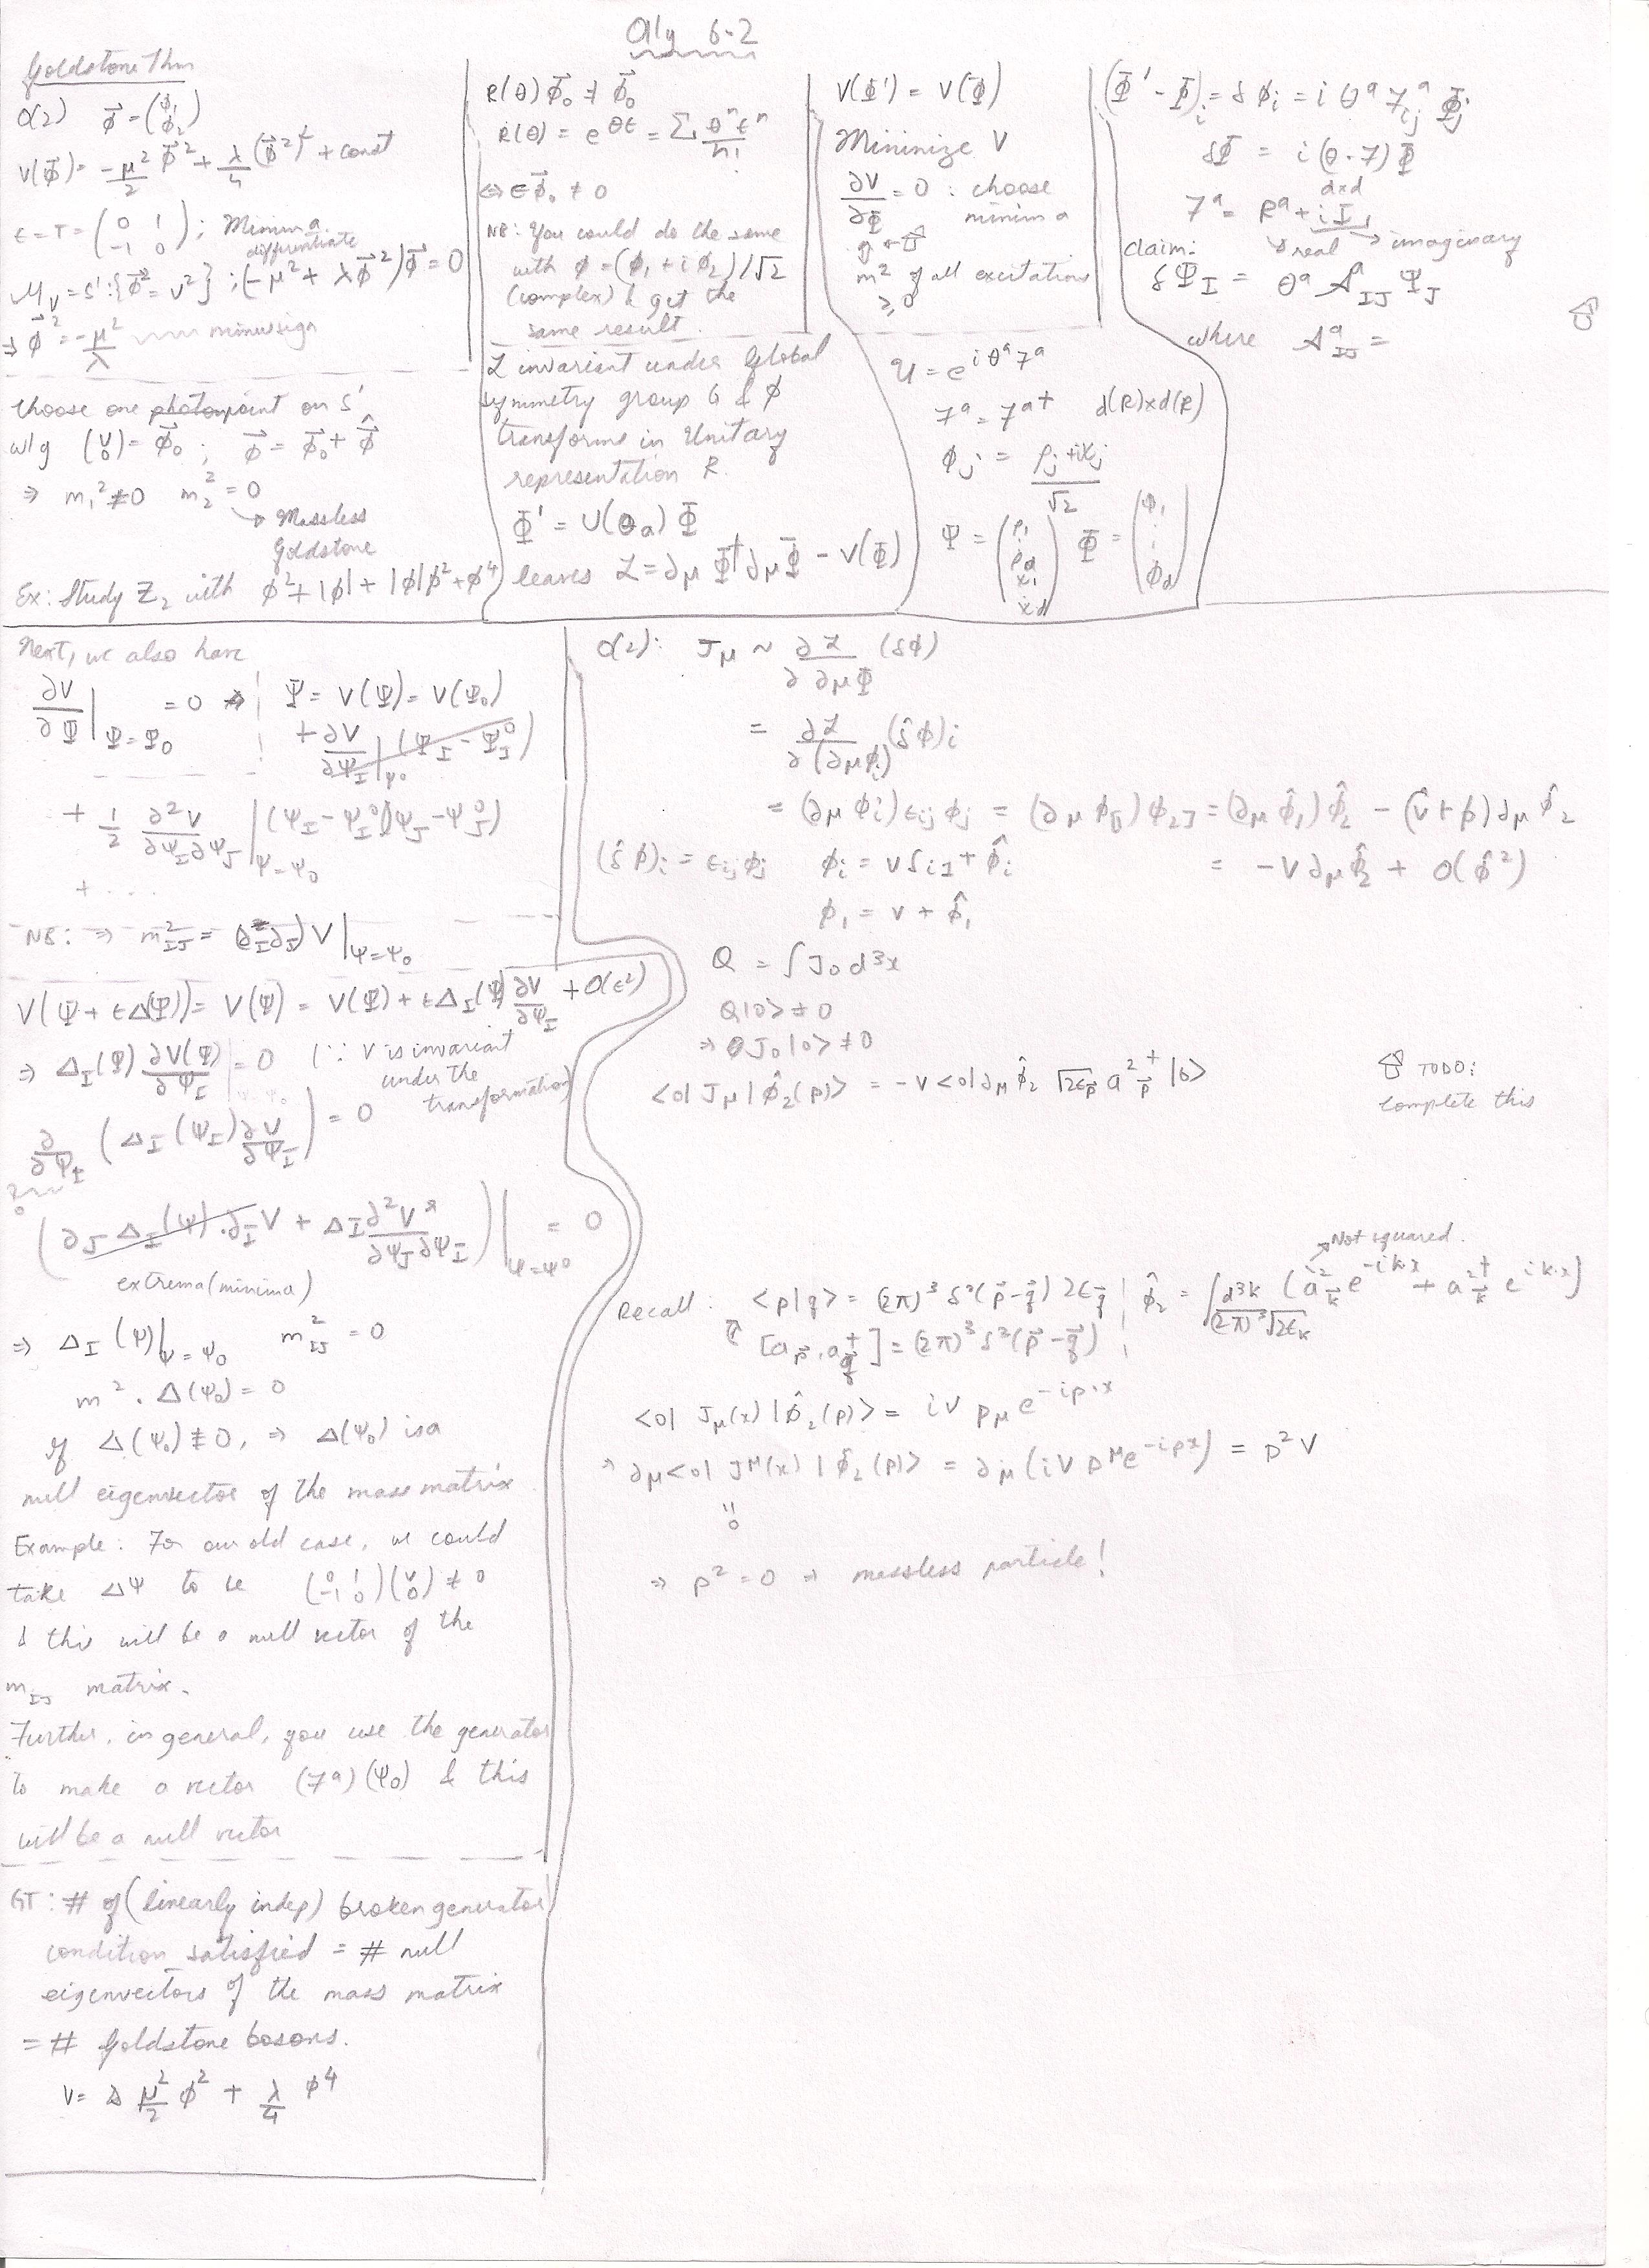 Aly 6-2
Goldstone Thm
O(2) φ⃗ = (φ₁ φ₂)
V(φ⃗) = -μ²/2 φ⃗² + λ/4 (φ⃗²)² + const
ε = T = (0 1 -1 0) ; Minima differentiate
M_V = S¹ : {φ⃗² = v²} ; (-μ² + λφ⃗²)φ⃗ = 0
⇒ φ⃗² = -μ²/λ minus sign
Choose one point on S¹
w/g (v 0) = φ⃗₀ ; φ⃗ = φ⃗₀ + φ̂
⇒ m₁² ≠ 0 m₂² = 0
→ Massless
Goldstone
Ex: Study Z₂ with φ² + |φ| + |φ|φ² + φ⁴
R(θ)φ⃗₀ ≠ φ⃗₀
R(θ) = e^{θε} = Σ θⁿεⁿ/n!
⇔ εφ⃗₀ ≠ 0
NB: You could do the same
with φ = (φ₁ + iφ₂)/√2
(complex) & get the
same result.
ℒ invariant under Global
symmetry group G & φ
transforms in Unitary
representation R.
Φ' = U(θₐ) Φ
leaves ℒ = ∂μ Φ† ∂μ Φ - V(Φ)
V(Φ') = V(Φ)
Minimize V
∂V/∂Φ = 0 : choose
minima
m² of all excitations
≥ 0
U = e^{iθᵃTᵃ}
Tᵃ = Tᵃ† d(R)×d(R)
φⱼ = (ρⱼ + iχⱼ)/√2
Ψ = (ρ₁ : ρ_d χ₁ : χ_d) Φ = (φ₁ : : φ_d)
(Φ' - Φ)ᵢ = δφᵢ = iθᵃ Tᵃᵢⱼ Φⱼ
δΦ = i(θ·T)Φ
d×d
Tᵃ = Rᵃ + i Iᵃ
→ real → imaginary
Claim:
δΨ_I = θᵃ Aᵃ_IJ Ψ_J
where Aᵃ_IJ =
Next, we also have
∂V/∂Φ |_{Ψ=Ψ₀} = 0 ⇒ Ψ = V(Ψ) = V(Ψ₀)
+ ∂V/∂Ψ_I |_{Ψ₀} (Ψ_I - Ψ_I⁰)
+ 1/2 ∂²V/∂Ψ_I∂Ψ_J |_{Ψ=Ψ₀} (Ψ_I - Ψ_I⁰)(Ψ_J - Ψ_J⁰)
+ ....
NB: ⇒ m²_IJ = (∂_I∂_J) V |_{Ψ=Ψ₀}
V(Ψ + εΔ(Ψ)) = V(Ψ) = V(Ψ) + εΔ_I(Ψ) ∂V/∂Ψ_I + O(ε²)
⇒ Δ_I(Ψ) ∂V(Ψ)/∂Ψ_I = 0 (∵ V is invariant
under the
transformation)
∂/∂Ψ_I (Δ_I(Ψ_I) ∂V/∂Ψ_I) = 0
(∂_J Δ_I(Ψ)·∂_I V + Δ_I ∂²V/∂Ψ_J∂Ψ_I) |_{Ψ=Ψ⁰} = 0
extrema (minima)
⇒ Δ_I(Ψ)|_{Ψ=Ψ₀} m²_IJ = 0
m² · Δ(Ψ₀) = 0
If Δ(Ψ₀) ≠ 0, ⇒ Δ(Ψ₀) is a
null eigenvector of the mass matrix
Example: For our old case, we could
take ΔΨ to be (0 1 -1 0)(v 0) ≠ 0
& this will be a null vector of the
m_IJ matrix.
Further, in general, you use the generator
to make a vector (Tᵃ)(Ψ₀) & this
will be a null vector
GT: # of (linearly indep) broken generator
condition satisfied = # null
eigenvectors of the mass matrix
= # Goldstone bosons.
V = μ²/2 φ² + λ/4 φ⁴
O(2): Jμ ~ ∂ℒ/∂ ∂μΦ (δφ)
= ∂ℒ/∂(∂μφᵢ) (δ̂φ)ᵢ
= (∂μφᵢ)εᵢⱼφⱼ = (∂μφ[₁)φ₂] = (∂μφ̂₁)φ̂₂ - (v+φ̂)∂μφ̂₂
(δ̂φ)ᵢ = εᵢⱼφⱼ φᵢ = vδᵢ₁ + φ̂ᵢ = -v∂μφ̂₂ + O(φ̂²)
φ₁ = v + φ̂₁
Q = ∫J₀ d³x
Q|0> ≠ 0
⇒ J₀|0> ≠ 0
<0|Jμ|φ̂₂(p)> = -v<0|∂μφ̂₂ √2ε_p⃗ a²†_p⃗ |0>
⇧ TODO:
complete this
→ Not squared.
Recall: <p|q> = (2π)³δ²(p⃗-q⃗) 2ε_q⃗ | φ̂₂ = ∫ d³k/(2π)³√2ε_k (a²_k⃗ e^{-ik·x} + a²†_k⃗ e^{ik·x})
[a_p⃗, a†_q⃗] = (2π)³δ²(p⃗-q⃗)
<0|Jμ(x)|φ̂₂(p)> = iv pμ e^{-ip·x}
⇒ ∂μ<0|J^μ(x)|φ̂₂(p)> = ∂μ(iv p^μ e^{-ipx}) = p²v
"
0
⇒ p² = 0 ⇒ massless particle!